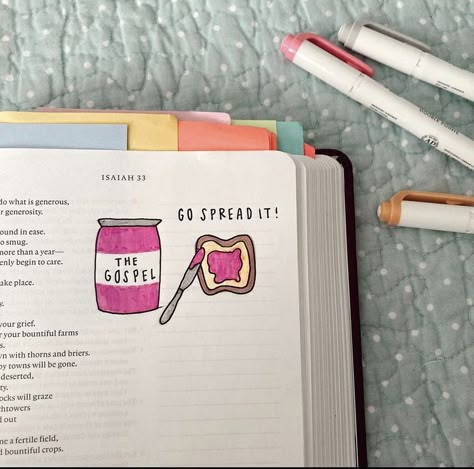 ISAIAH 33
do what is generous,
generosity.
ound in ease.
o smug.
more than a year—
enly begin to care.
ake place.
y.
your grief.
your bountiful farms
s.
wn with thorns and briers.
by towns will be gone.
deserted,
ty.
ocks will graze
chtowers
d out
me a fertile field,
d bountiful crops.
GO SPREAD IT!
THE
GOSPEL